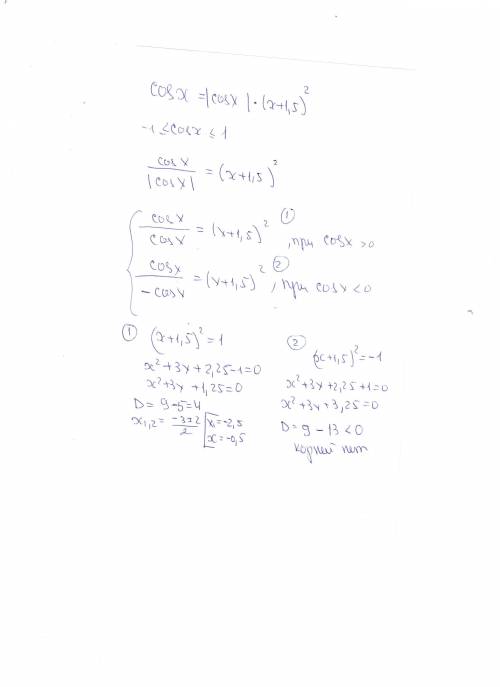 cosx = |cosx| · (x+1,5)²
-1 ≤ cosx ≤ 1
cosx/|cosx| = (x+1,5)²
{ cosx/cosx = (x+1,5)² ① , при cosx >0
cosx/-cosx = (x+1,5)² ② , при cosx <0
① (x+1,5)² = 1
x²+3x+2,25-1=0
x²+3x+1,25=0
D = 9-5=4
x₁,₂ = -3±2/2 [x=-2,5
x=-0,5
② (x+1,5)² = -1
x²+3x+2,25+1=0
x²+3x+3,25=0
D = 9 - 13 <0
корней нет